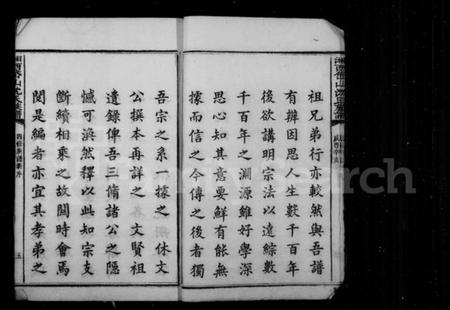 祖兄弟行亦較然與吾譜
有辯因思人生數千百年
後欲講明宗法以遠綜數
千百年之淵源雖好學深
思心知其意要鮮有能無
據而信之今傳之後者獨
吾宗之系一據之 休文
公撰本再詳之 文賢祖
遺錄俾吾三脩諸公之隱
憾可渙然釋以此知宗支
斷續相乘之故關時會焉
閱是編者亦宜其孝弟之